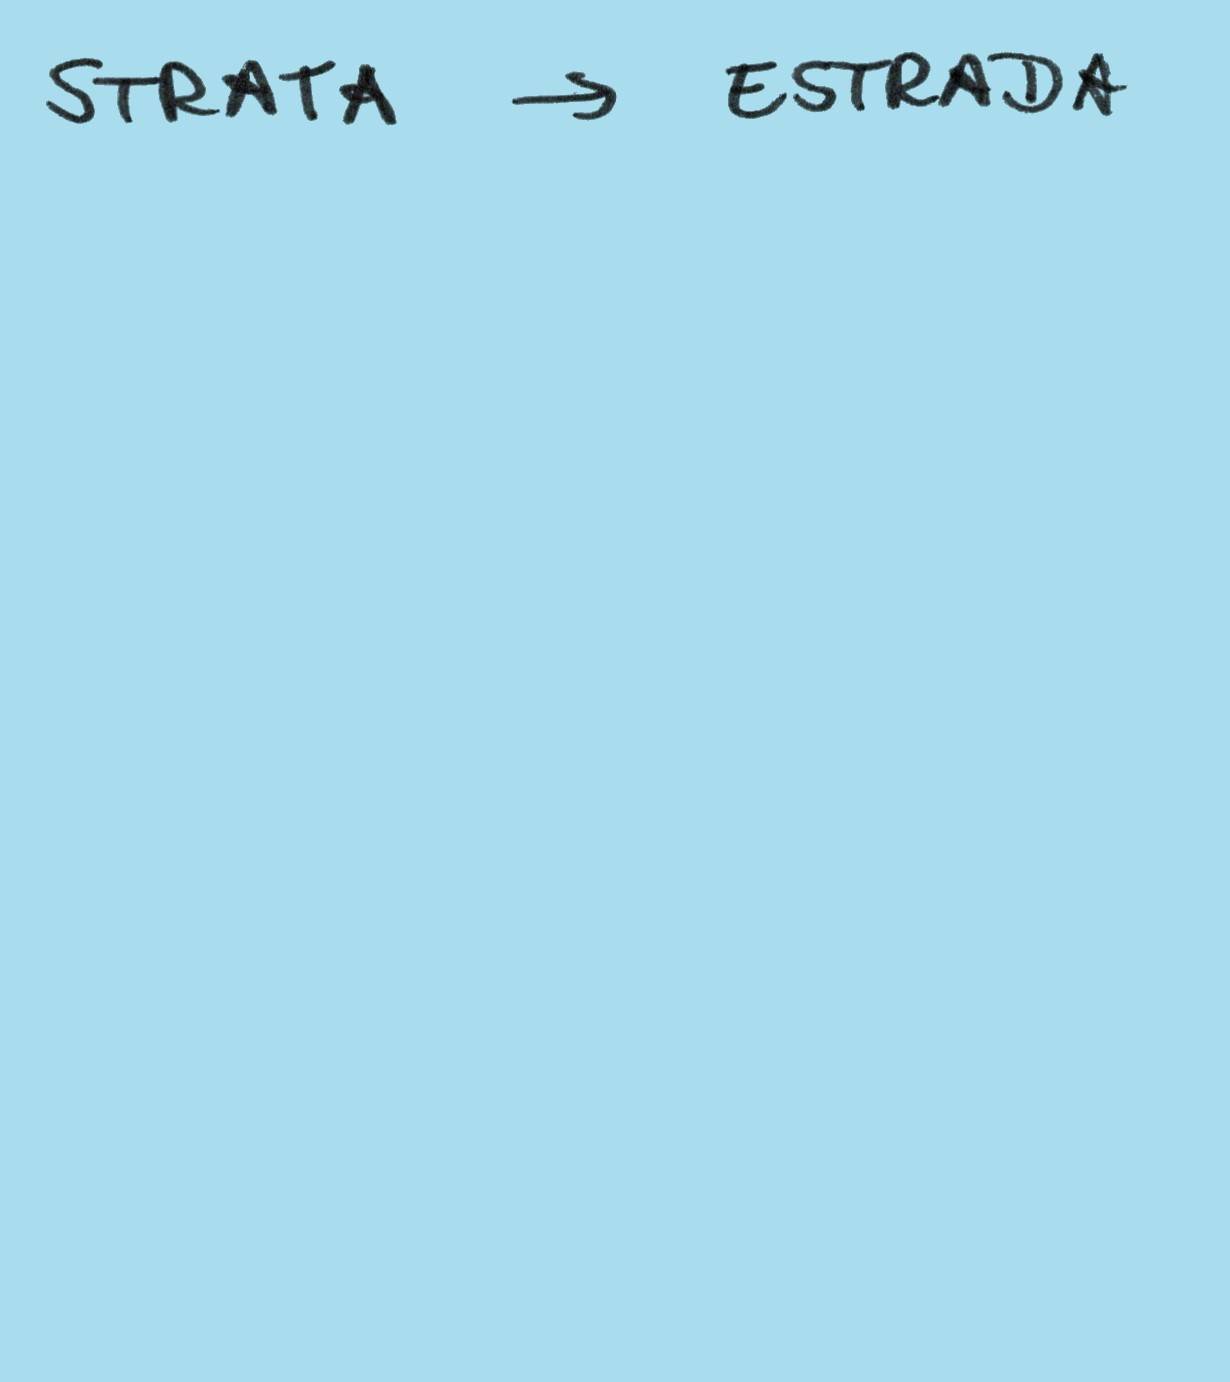 STRATA → ESTRADA